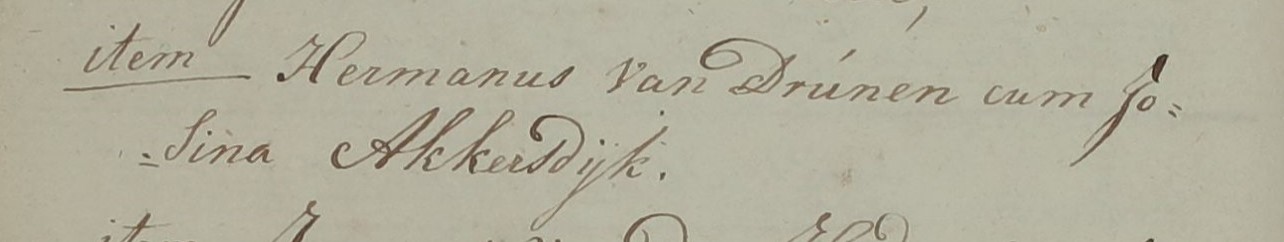 item Hermanus Van Drúnen cum Jo=
=Sina Akkersdijk.
item